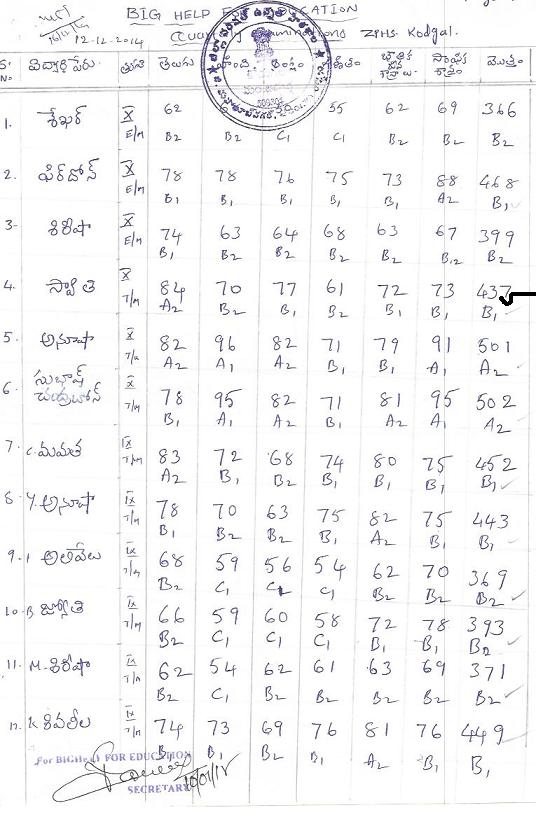 12-12-2014
BIG HELP FOR EDUCATION
ZPHS. Kodgal.
S. No విద్యార్థిపేరు తెలుగు హింది సాంఘిక శాస్త్రం మొత్తం
1. శేఖర్ X E/M 62 55 62 69 366
B2 B2 C1 C1 B2 B2 B2
2. ఫిర్దోస్ X E/M 78 78 76 75 73 88 468
B1 B1 B1 B1 B1 A2 B1
3- శిరీషా X E/M 74 63 64 68 63 67 399
B1 B2 B2 B2 B2 B2 B2
4. స్వాతి X T/M 84 70 77 61 72 73 437
A2 B2 B1 B2 B1 B1 B1
5. అనూషా X T/M 82 96 82 71 79 91 501
A2 A1 A2 B1 B1 A1 A2
6. సుభాష్ చంద్రబోస్ X T/M 78 95 82 71 81 95 502
B1 A1 A2 B1 A2 A1 A2
7. C. మమత IX T/M 83 72 68 74 80 75 452
A2 B1 B2 B1 B1 B1 B1
8. Y. అనూషా IX T/M 78 70 63 75 82 75 443
B1 B2 B2 B1 A2 B1 B1
9. అలివేలు IX T/M 68 59 56 54 62 70 369
B2 C1 C1 C1 B2 B2 B2
10. B జ్యోతి IX T/M 66 59 60 58 72 78 393
B2 C1 C1 C1 B1 B1 B2
11. M. శిరీషా IX T/M 62 54 62 61 63 69 371
B2 C1 B2 B2 B2 B2 B2
12. K శివలీల IX T/M 74 73 69 76 81 76 449
B1 B1 B2 B1 A2 B1 B1
For BIGHelp FOR EDUCATION
SECRETARY